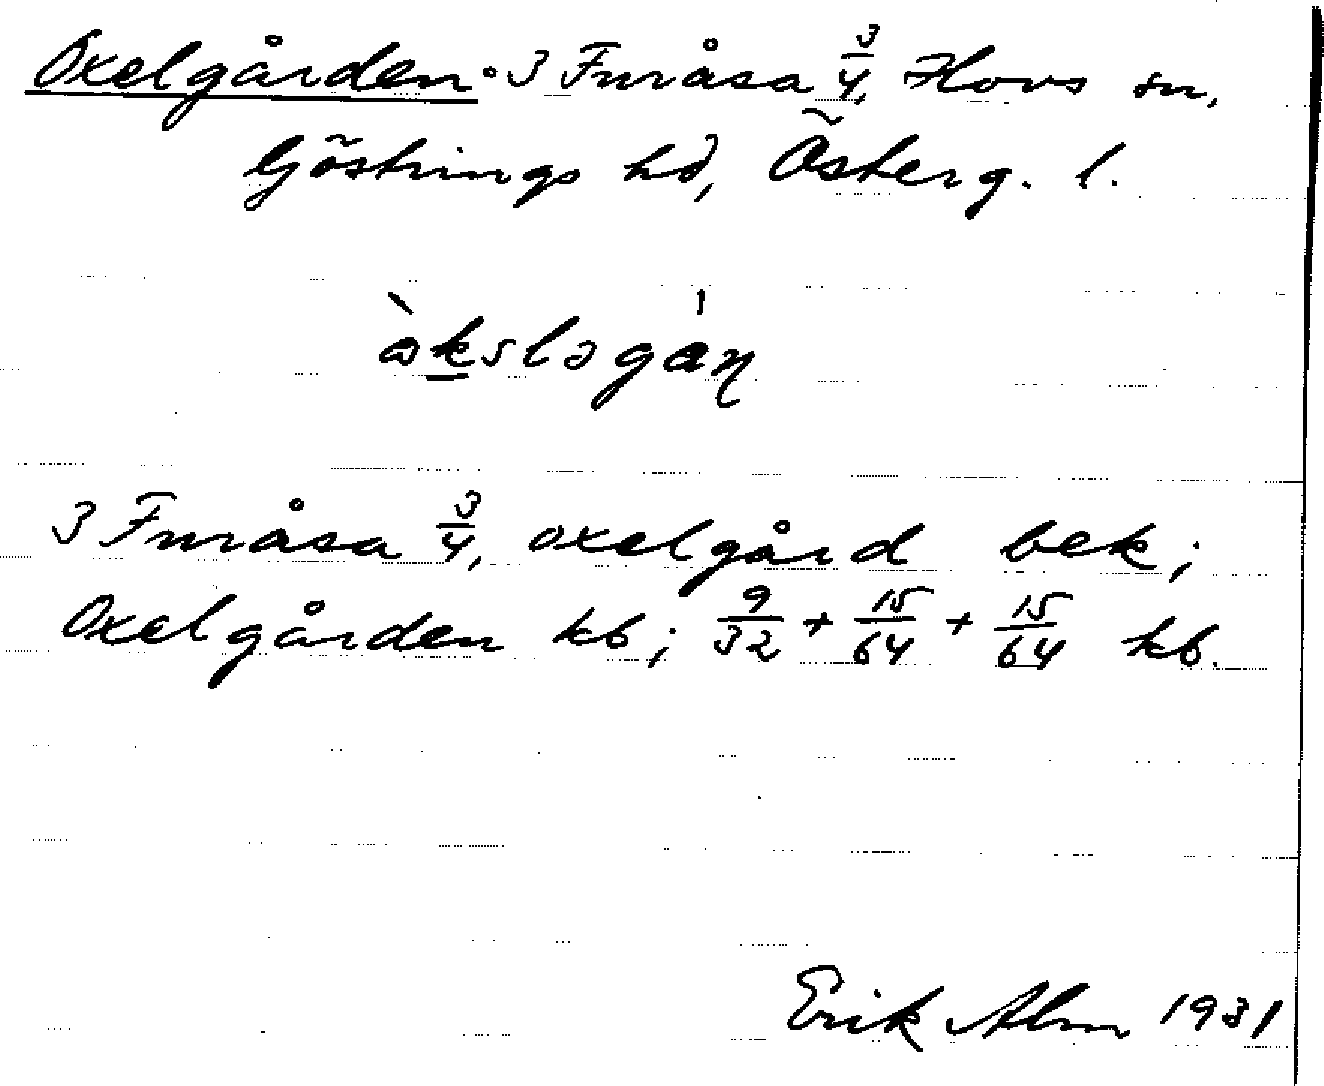 Oxelgården. 3 Furåsa 3/4, Hovs sn,
Göstrings hd, Österg. l.
3 Furåsa 3/4, oxelgård bek;
Oxelgården kb; 9/32 + 15/64 + 15/64 kb.
Erik Alm 1931